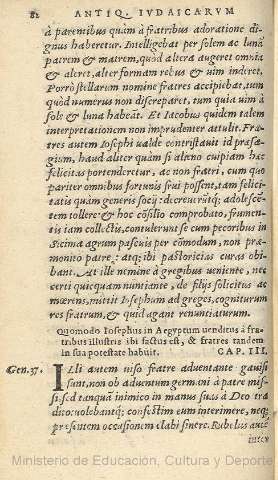 82 ANTIQ. IVDAICARVM
à parentibus quàm à fratribus adoratione di-
gnus haberetur. Intelligebat per solem ac lunã
patrem & matrem, quòd altera augeret omnia
& aleret, alter formam rebus & uim inderet.
Porrò stellarum nomine fratres accipiebat, tum
quòd numerus non discreparet, tum quia uim à
sole & luna habeãt. Et Iacobus quidem talem
interpretationem non imprudenter attulit. Fra-
tres autem Iosephi ualde contristauit id præsa-
gium, haud aliter quàm si alieno cuipiam hæc
felicitas portenderetur, ac non fratri, cum quo
pariter omnibus fortunis frui possent, tam felici-
tatis quàm generis socij: decreuerũtq; adolescẽ-
tem tollere: & hoc cõsilio comprobato, frumen-
tis iam collectis, contulerunt se cum pecoribus in
Sicima agrum pascuis percõmodum, non præ-
monito patre: atq; ibi pastoricias curas obi-
bant. At ille nemine à gregibus ueniente, nec
certi quicquam nuntiante, de filijs solicitus ac
mœrens, mittit Iosephum ad greges, cogniturum
res fratrum, & quid agant renuntiaturum.
Quomodo Iosephus in Aegyptum uenditus à fra-
tribus illustris ibi factus est, & fratres tandem
in sua potestate habuit. CAP. III.
Gen. 37. ILli autem uiso fratre aduentante gauisi
sunt, non ob aduentum germani à patre mis-
si, sed tanquã inimico in manus suas à Deo tra-
dito: uolebantq; confestim eum interimere, neq;
præsentem occasionem elabi sinere. Rubelus aut
inten
Ministerio de Educación, Cultura y Deporte